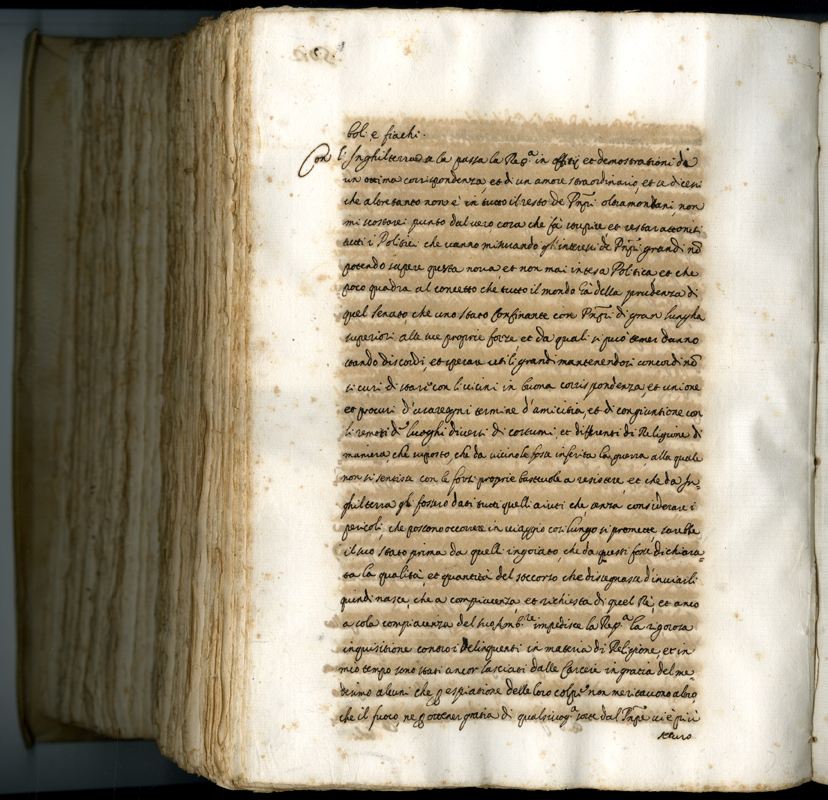 boli e fiachi.
Con l'Inghilterra la passa la Rep.a in offitij et demostrationi di
un ottima corrispondenza, et di un amore straordinario, et se dicessi
che altretanto non è in tutto il resto de Pnpi oltramontani, non
mi scostarei punto dal vero cosa che fà stupire et restar attoniti
tutti i Politici che vanno misurando gl'interessi de Pnpi grandi nō
potendo sapere questa nova, et non mai intesa Politica et che
poco quadra al concetto che tutto il mondo hà della prudenza di
quel senato che uno stato Confinante con Pnpi di gran lungha
superiori alle sue proprie forze et da quali si può temer danno
stando discordi, et sperare utili grandi mantenendosi concordi nō
si curi di stare con li vicini in buona corrispondenza, et unione
et procuri d'usare ogni termine d'amicitia, et di congiuntione con
li remoti di luoghi diversi di costumi, et differenti di Religione di
maniera, che suposto, che da vicino le fosse inferita la guerra alla quale
non si sentisse con le forze proprie bastevole a resistere, et che da In-
ghilterra gli fossero dati tutti quelli aiuti che senza considerare i
pericoli, che possono occorrere in viaggio cosi lungo si promette, sarebbe
il suo stato prima da quelli ingoiato, che da questi fosse dichiara-
ta la qualità, et quantità del soccorso che disegnasse d'inviarli
quindi nasce, che a compiacenza, et richiesta di quel Rè, et anco
a sola compiacenza del suo Amb.re impedisce la Rep.a la rigorosa
inquisitione contro i delinquenti in materia di Religione, et in
mio tempo sono stati ancor lasciati dalle Carceri in gratia del me-
desimo alcuni che p espiatione delle loro colpe non meritavono altro,
che il fuoco, ne p ottener gratia di qualsivog.a sorte dal Pnpe vi è più
sicuro